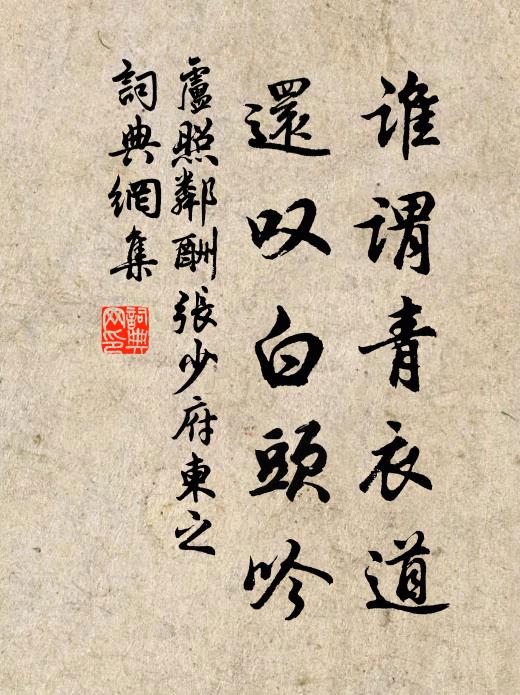 誰謂青衣道
還叹白頭吟
盧照鄰酬張少府東之
詞典網集
詞典網印